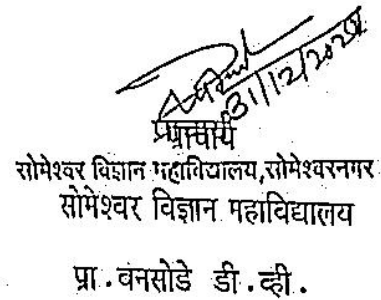 31/12/2021
प्राचार्य
सोमेश्वर विज्ञान महाविद्यालय,सोमेश्वरनगर
सोमेश्वर विज्ञान महाविद्यालय
प्रा.बनसोडे डी.व्ही.